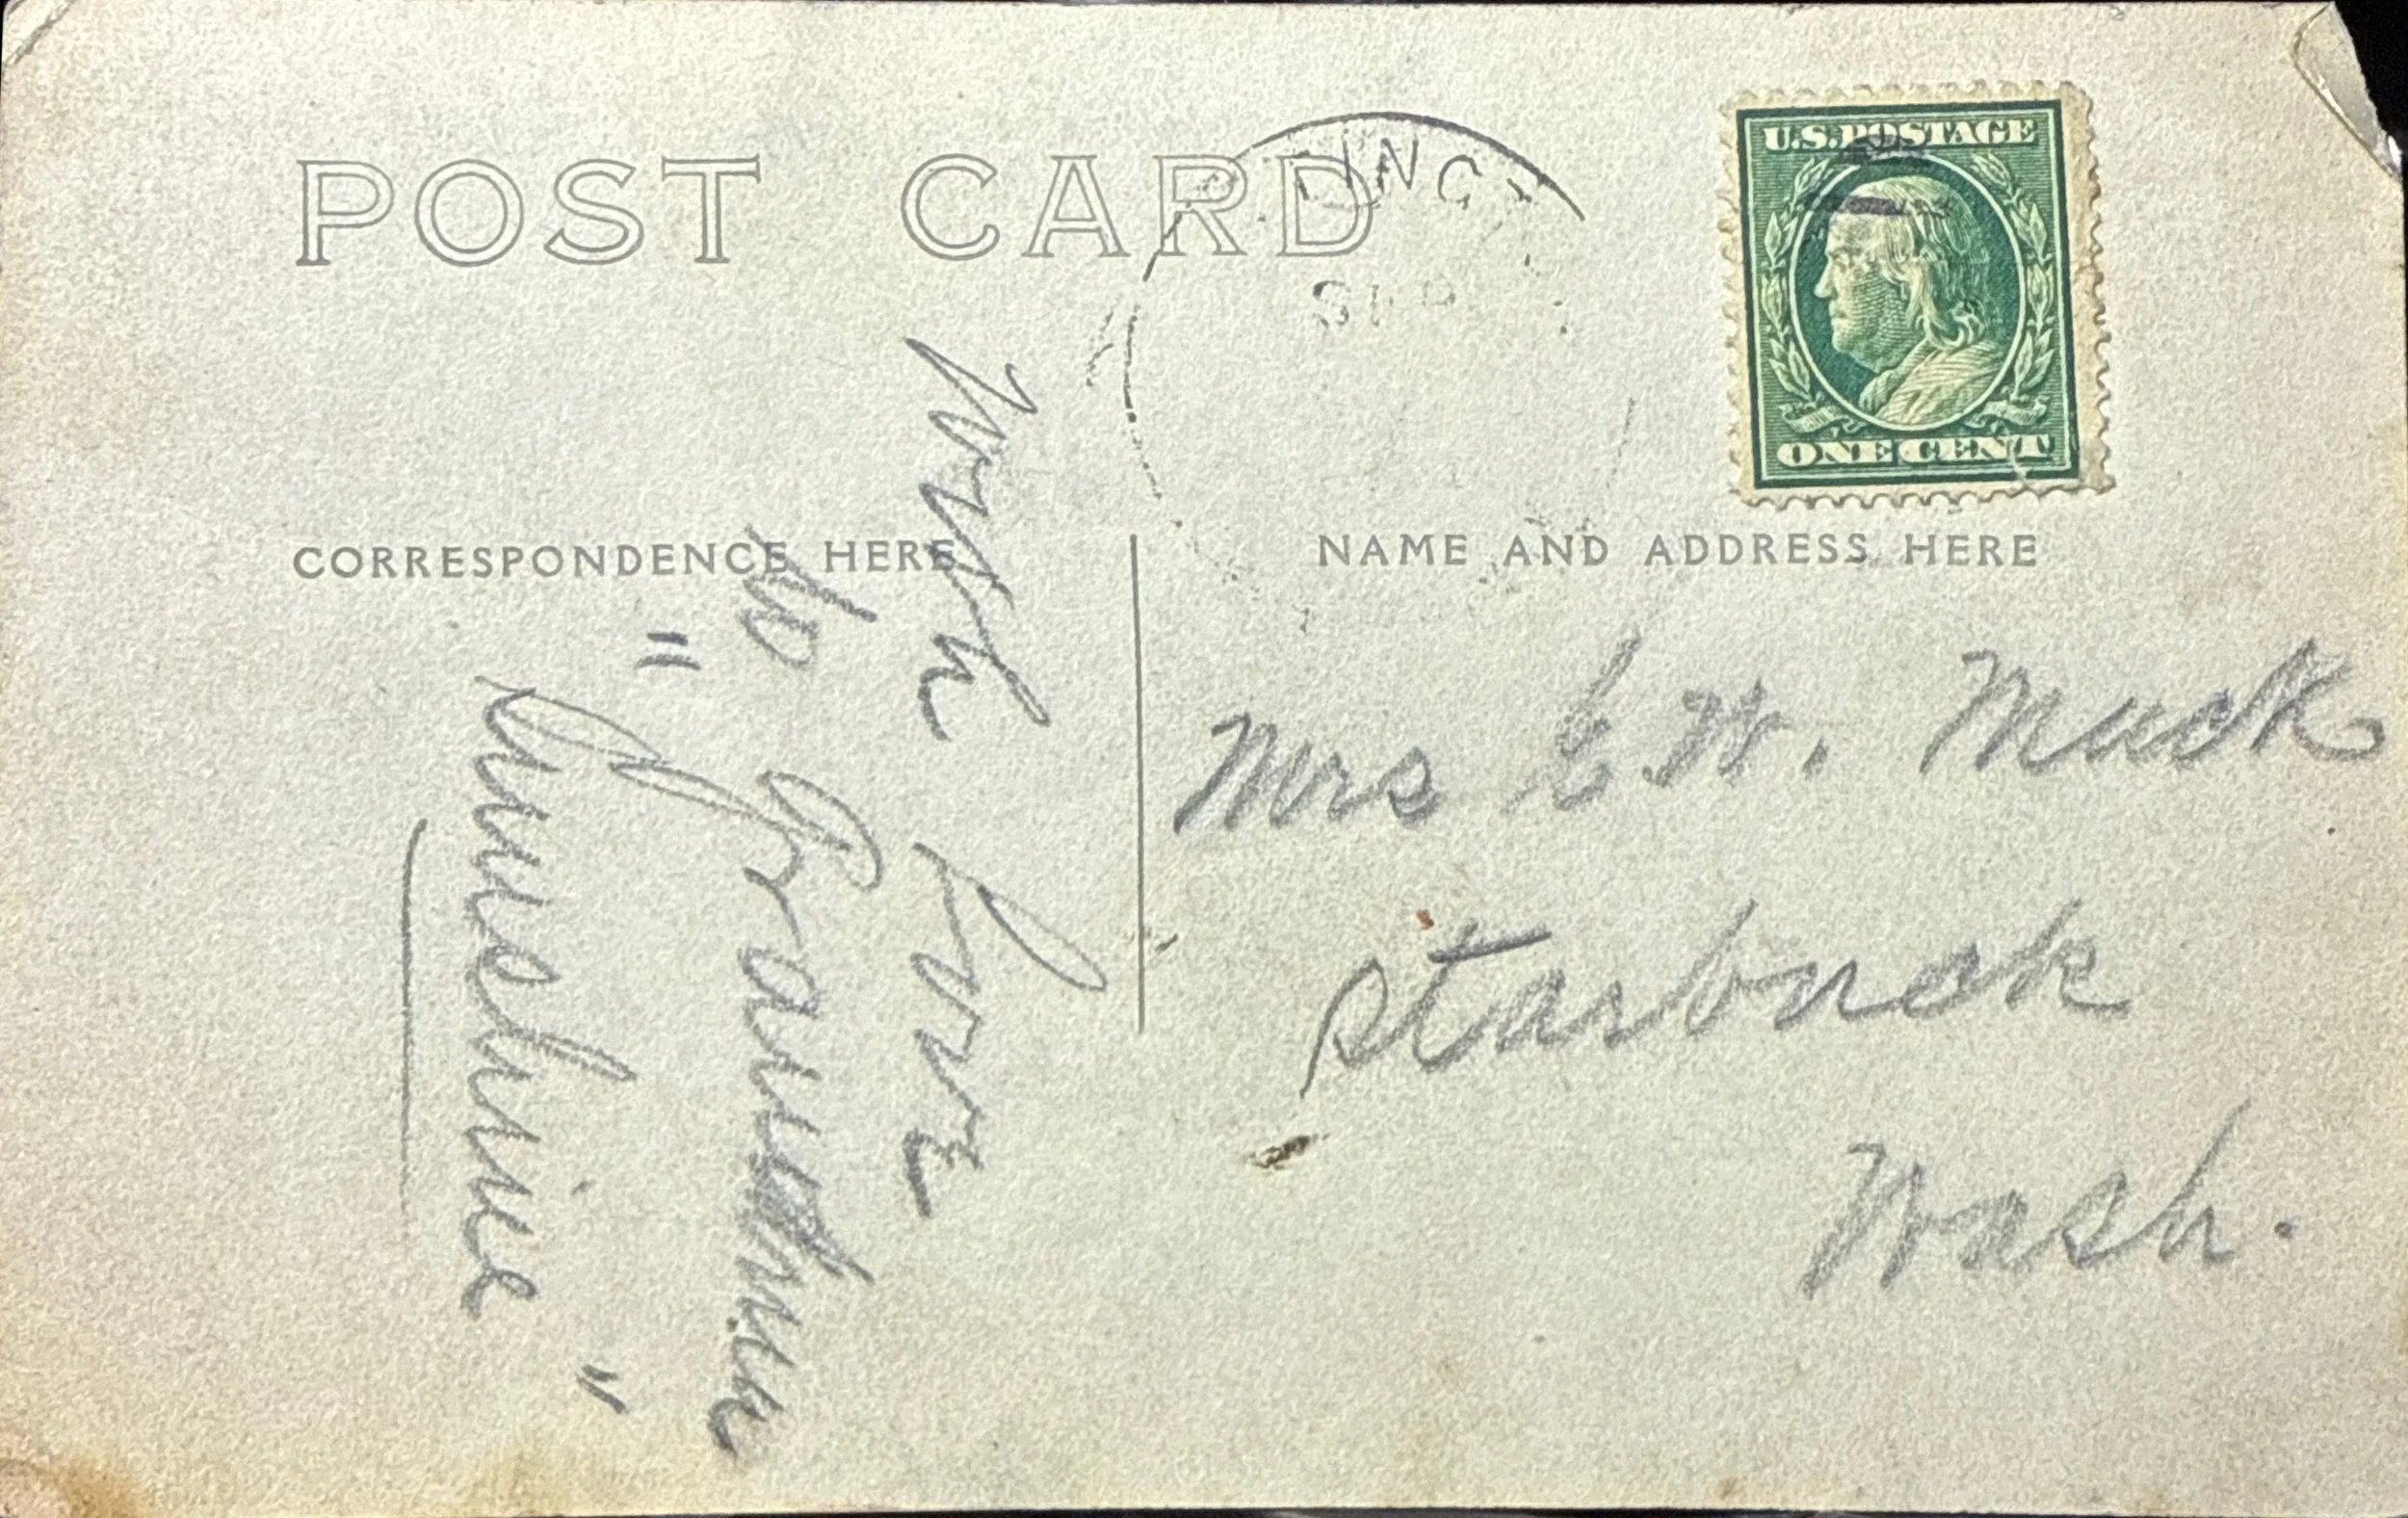 POST CARD
SEP
U.S.POSTAGE
ONE CENT
CORRESPONDENCE HERE
NAME AND ADDRESS HERE
With Love
to Grandma
"Sunshine"
Mrs W. Muck
Starbuck
Wash.